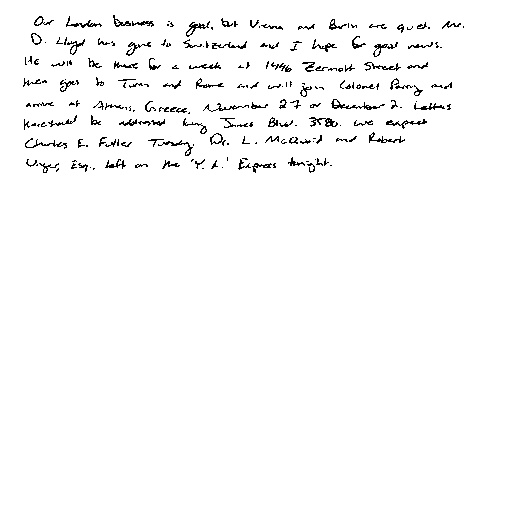 Our London business is good, but Vienna and Berlin are quiet. Mr.
D. Lloyd has gone to Switzerland and I hope for good news.
He will be there for a week at 1496 Zermott Street and
then goes to Turin and Rome and will join Colonel Parry and
arrive at Athens, Greece, November 27 or December 2. Letters
there should be addressed King James Blvd. 3580. We expect
Charles E. Fuller Tuesday. Dr. L. McQuaid and Robert
Unger, Esq., left on the 'Y. X.' Express tonight.